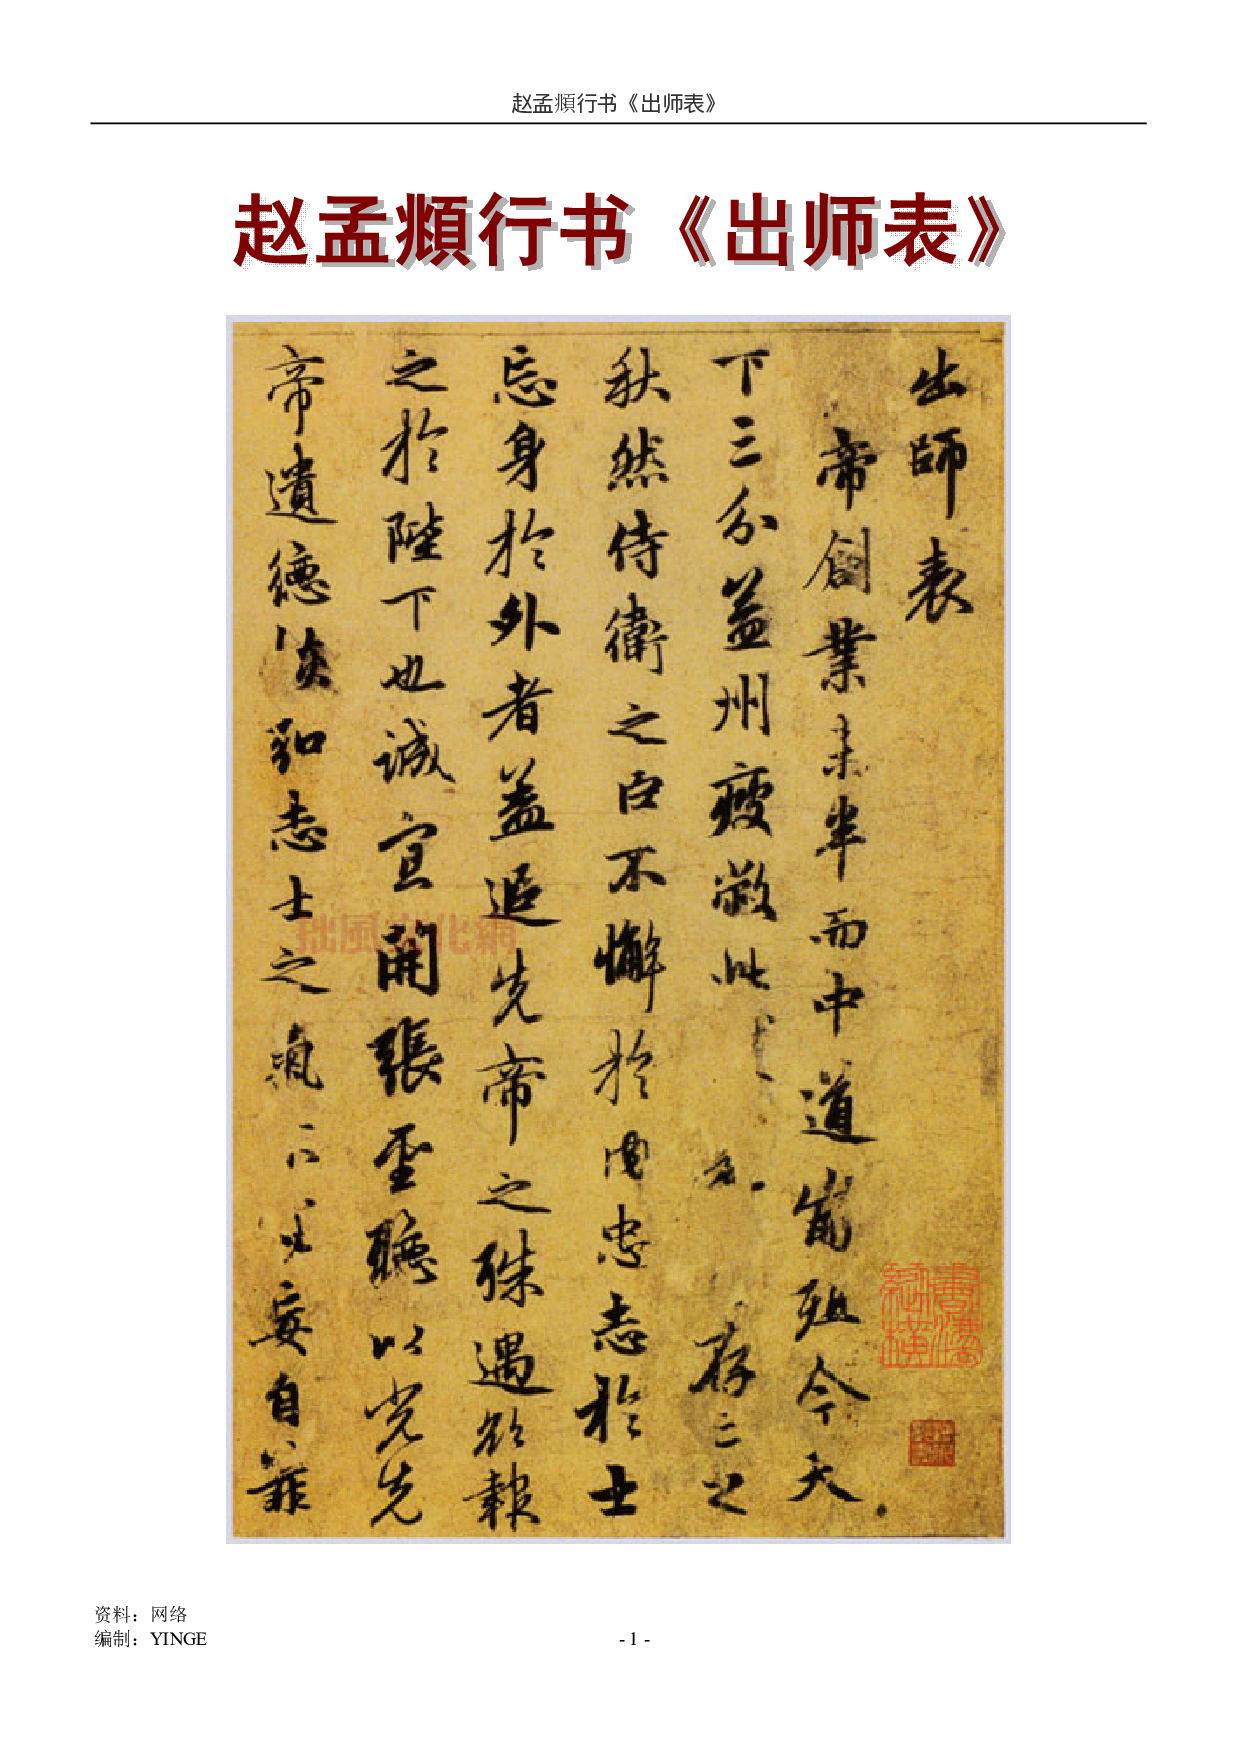 赵孟頫行书《出师表》
赵孟頫行书《出师表》
出師表
帝創業未半而中道崩殂今天
下三分益州疲敝此 存亡之
秋然侍衛之臣不懈於内忠志於士
忘身於外者盖追先帝之殊遇欲報
之於陛下也誠宜開張聖聽以光先
帝遺德恢弘志士之氣不宜妄自菲
拙風文化網
書法
縱橫
资料：网络
编制：YINGE
- 1 -